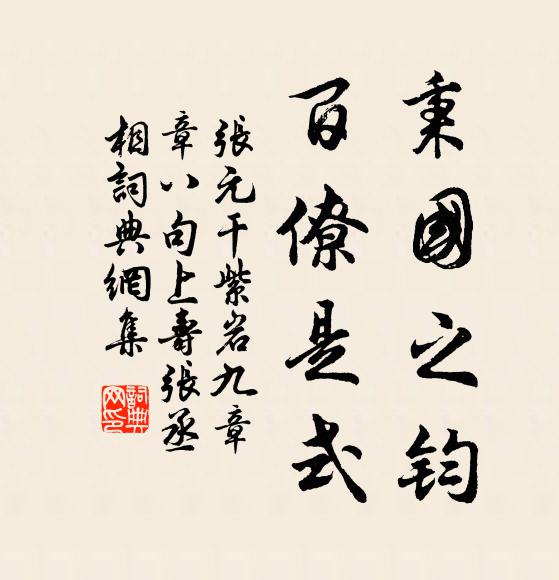 秉國之鈞
百僚是式
張元干紫岩九章
章八句上壽張丞
相詞典網集
詞典
网印